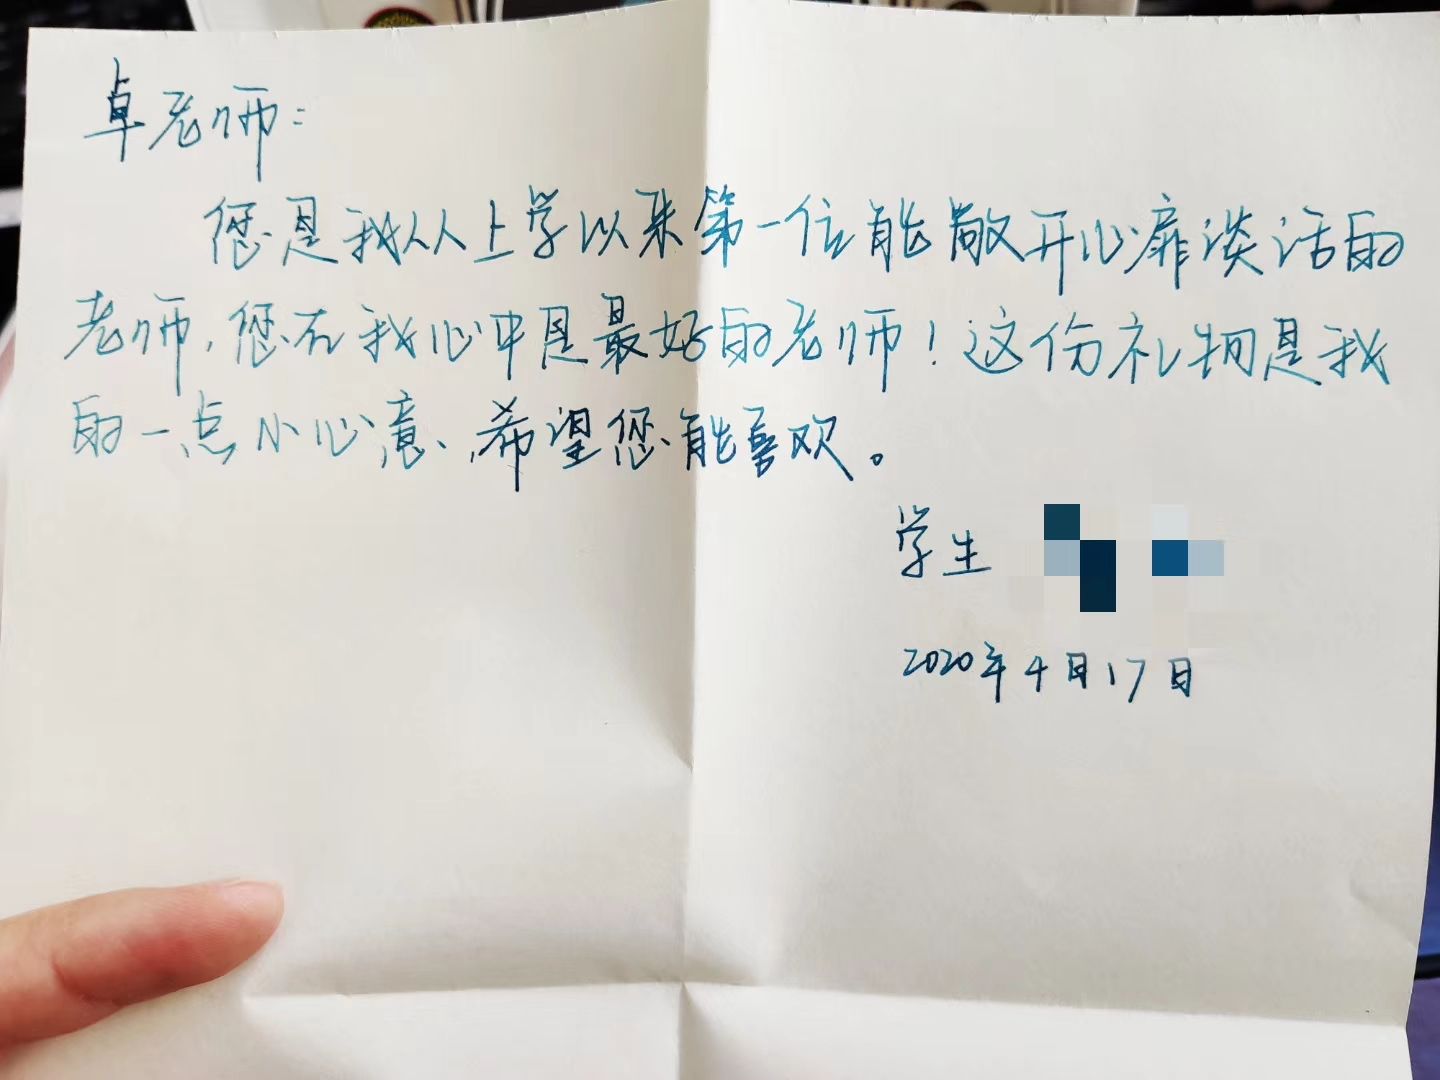 卓老师：
您是我从上学以来第一位能敞开心扉谈话的
老师，您在我心中是最好的老师！这份礼物是我
的一点小心意、希望您能喜欢。
学生
2020年4月17日